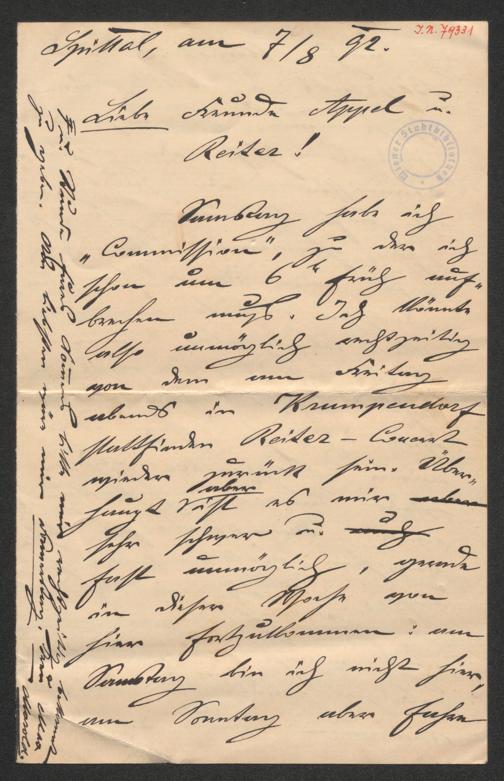 I.N. 79331
Spittal, am 7/8 92.
Liebe Freunde Appel u.
Reiter!
Wiener Stadtbibliothek
Samstag habe ich
„Commission“, zu der ich
schon um 6h früh auf-
brechen muß. Ich könnte
also unmöglich rechtzeitig
von dem am Freitag
abends in Krumpendorf
stattfinden Reiter-Concert
wieder zurück sein. Über-
haupt ist es mir aber
sehr schwer u.
fast unmöglich, gerade
in dieser Woche von
hier fortzukommen: am
Samstag bin ich nicht hier,
am Sonntag aber fahre
zu geben. Am liebsten wäre mir